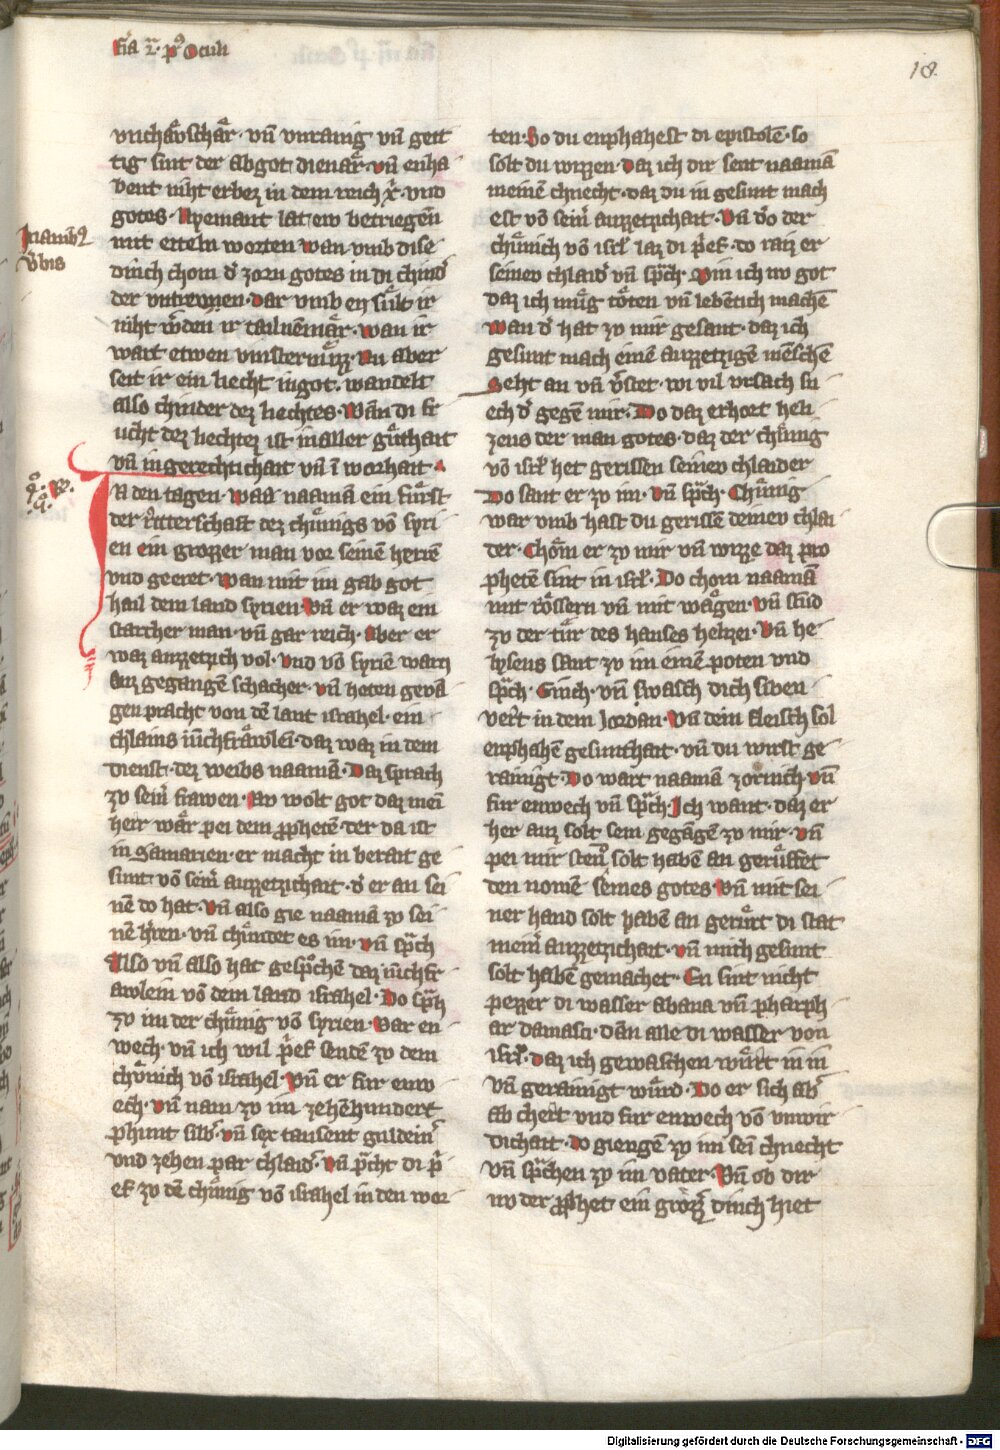 fia ij· p⁹ Oculi
18
vnchaͤvschaͤr · vn̄ vnrainig vn̄ geit
tig sint der abgot dienaͤr · vn̄ enha
bent niht erbez in dem reich xp̄i · vnd
gotes · Nyemant lat ew betriegen
mit eiteln worten wan vmb dise
dinch chom d̓ zorn gotes in di chind̓
der vntrewen · Dar vmb en suͤlt ir
niht w̓den ir tailnemaͤr · wan ir
wart etwen vinsternuͤzz · Nu aber
seit ir ein liecht in got · wandelt
also chinder dez liechtes · Wan di fr
ucht dez liechtez ist in aller guͤthait
vn̄ in gerechtichait vn̄ ī worhait ·
In manib⁹
v̓bis
IN den tagen · waz naamā ein fuͤrst
der ritterschaft dez chuͤnigs vō syri
en ein grozzer man vor seinē herrē
vnd geeret · wan mit im gab got
hail dem land syrien · Vn̄ er waz ein
starcher man · vn̄ gar reich · Aber er
waz auzzetzich vol · vnd vō syriē warn
auz gegangē schacher · vn̄ heten gevā
gen pracht von dē lant israhel · ein
chlains iūchfraͤwleī · daz waz in dem
dienst · dez weibs naamā · Daz sprach
zv seinr̄ frawen · Av wolt got daz mein
herr waͤr pei dem prophetē · der da ist
in Samarien · er macht in berait ge
sunt · vō seinr̄ auzzetzichait · d̓ er an sei
nē do hat · Vn̄ also gie naamā zv sei
nē h̓ren · vn̄ chuͤndet es im · vn̄ sp̄ch
Also vn̄ also hat gesp̄chē daz iūchfr
awlein vō dem land israhel · Do sp̄ch
zv im der chuͤnig vō syrien · Var en
wech · vn̄ ich wil p̄ef sendē zv dem
chuͤnich vō israhel · Vn̄ er fur enw
ech · vn̄ nam zv im zehēhundert
phunt silb̓ · vn̄ sex tausent guldein̓
vnd zehen par chlaid̓ · vn̄ p̄cht di p̄
ef zv dē chuͤnig vō israhel in den wor
ten · So du enphahest di epistolē · so
solt du wizzen · Daz ich dir sent naamā
meinē chnecht · daz du in gesunt mach
est vō seinr̄ auzzetzichait · Vn̄ do der
chuͤnich vō isrl̄ laz di p̄ef · do raiz er
seinev chlaid̓ vn̄ sp̄ch · Bin ich nv got
daz ich muͤg toͤten vn̄ lebentich machē
wan d̓ hat zv mir gesant · daz ich
gesunt mach einē auzzetzigē mēschē
Seht an vn̄ v̓stet · wi vil vrsach su
ech d̓ gegē mir · Do daz erhort heli
zeus der man gotes · daz der chuͤnig
vō isrl̄ het gerissen seinev chlaider
Do sant er zv im · vn̄ sp̄ch · Chuͤnig
war vmb hast du gerissē deinev chlai
der · Choͤm er zv mir vn̄ wizze daz pro
phetē sint in isrl̄ · Do chom naamā
mit roͤssern vn̄ mit waͤgen · vn̄ stūd
zv der tuͤr des hauses helizei · Vn̄ he
lyseus sant zv im einē poten vnd
sp̄ch · Ginch · vn̄ swasch dich siben
vert in dem Jordan · Vn̄ dein fleisch sol
enphahē gesunthait · vn̄ du wirst ge
rainigt · Do wart naamā zornich vn̄
fur enwech vn̄ sp̄ch · Ich want · daz er
her auz solt sein gegāgē zv mir · vn̄
pei mir sten̄ solt habē an geruͤffet
den nomē seines gotes · Vn̄ mit sei
ner hand solt habē an geruͤrt di stat
meinr̄ auzzetzichait · vn̄ mich gesunt
solt habē gemachet · En sint nicht
pezzer di wasser abana vn̄ pharph
ar damasci · dan̄ alle di wasser von
isrl̄ · Daz ich gewaschen wuͤrt in in
vn̄ gerainigt wuͤrd · Do er sich ab̓
ab chert vnd fur enwech vō vnwir
dichait · Do giengē zv im seī chnecht
vn̄ sp̄chen zv im vater · Vn̄ ob dir
nv der prophet ein groͤzz̓ dinch hiet
Digitalisierung gefördert durch die Deutsche Forschungsgemeinschaft - DFG